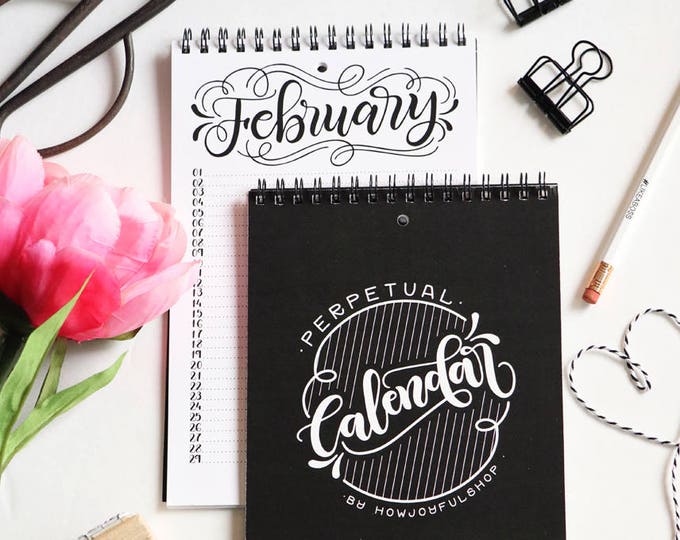 February
01
02
03
04
05
06
07
08
09
11
12
13
14
15
16
17
18
19
20
21
22
23
24
25
26
27
28
29
· PERPETUAL ·
Calendar
· BY HOWJOYFULSHOP ·
#LIKEABOSS